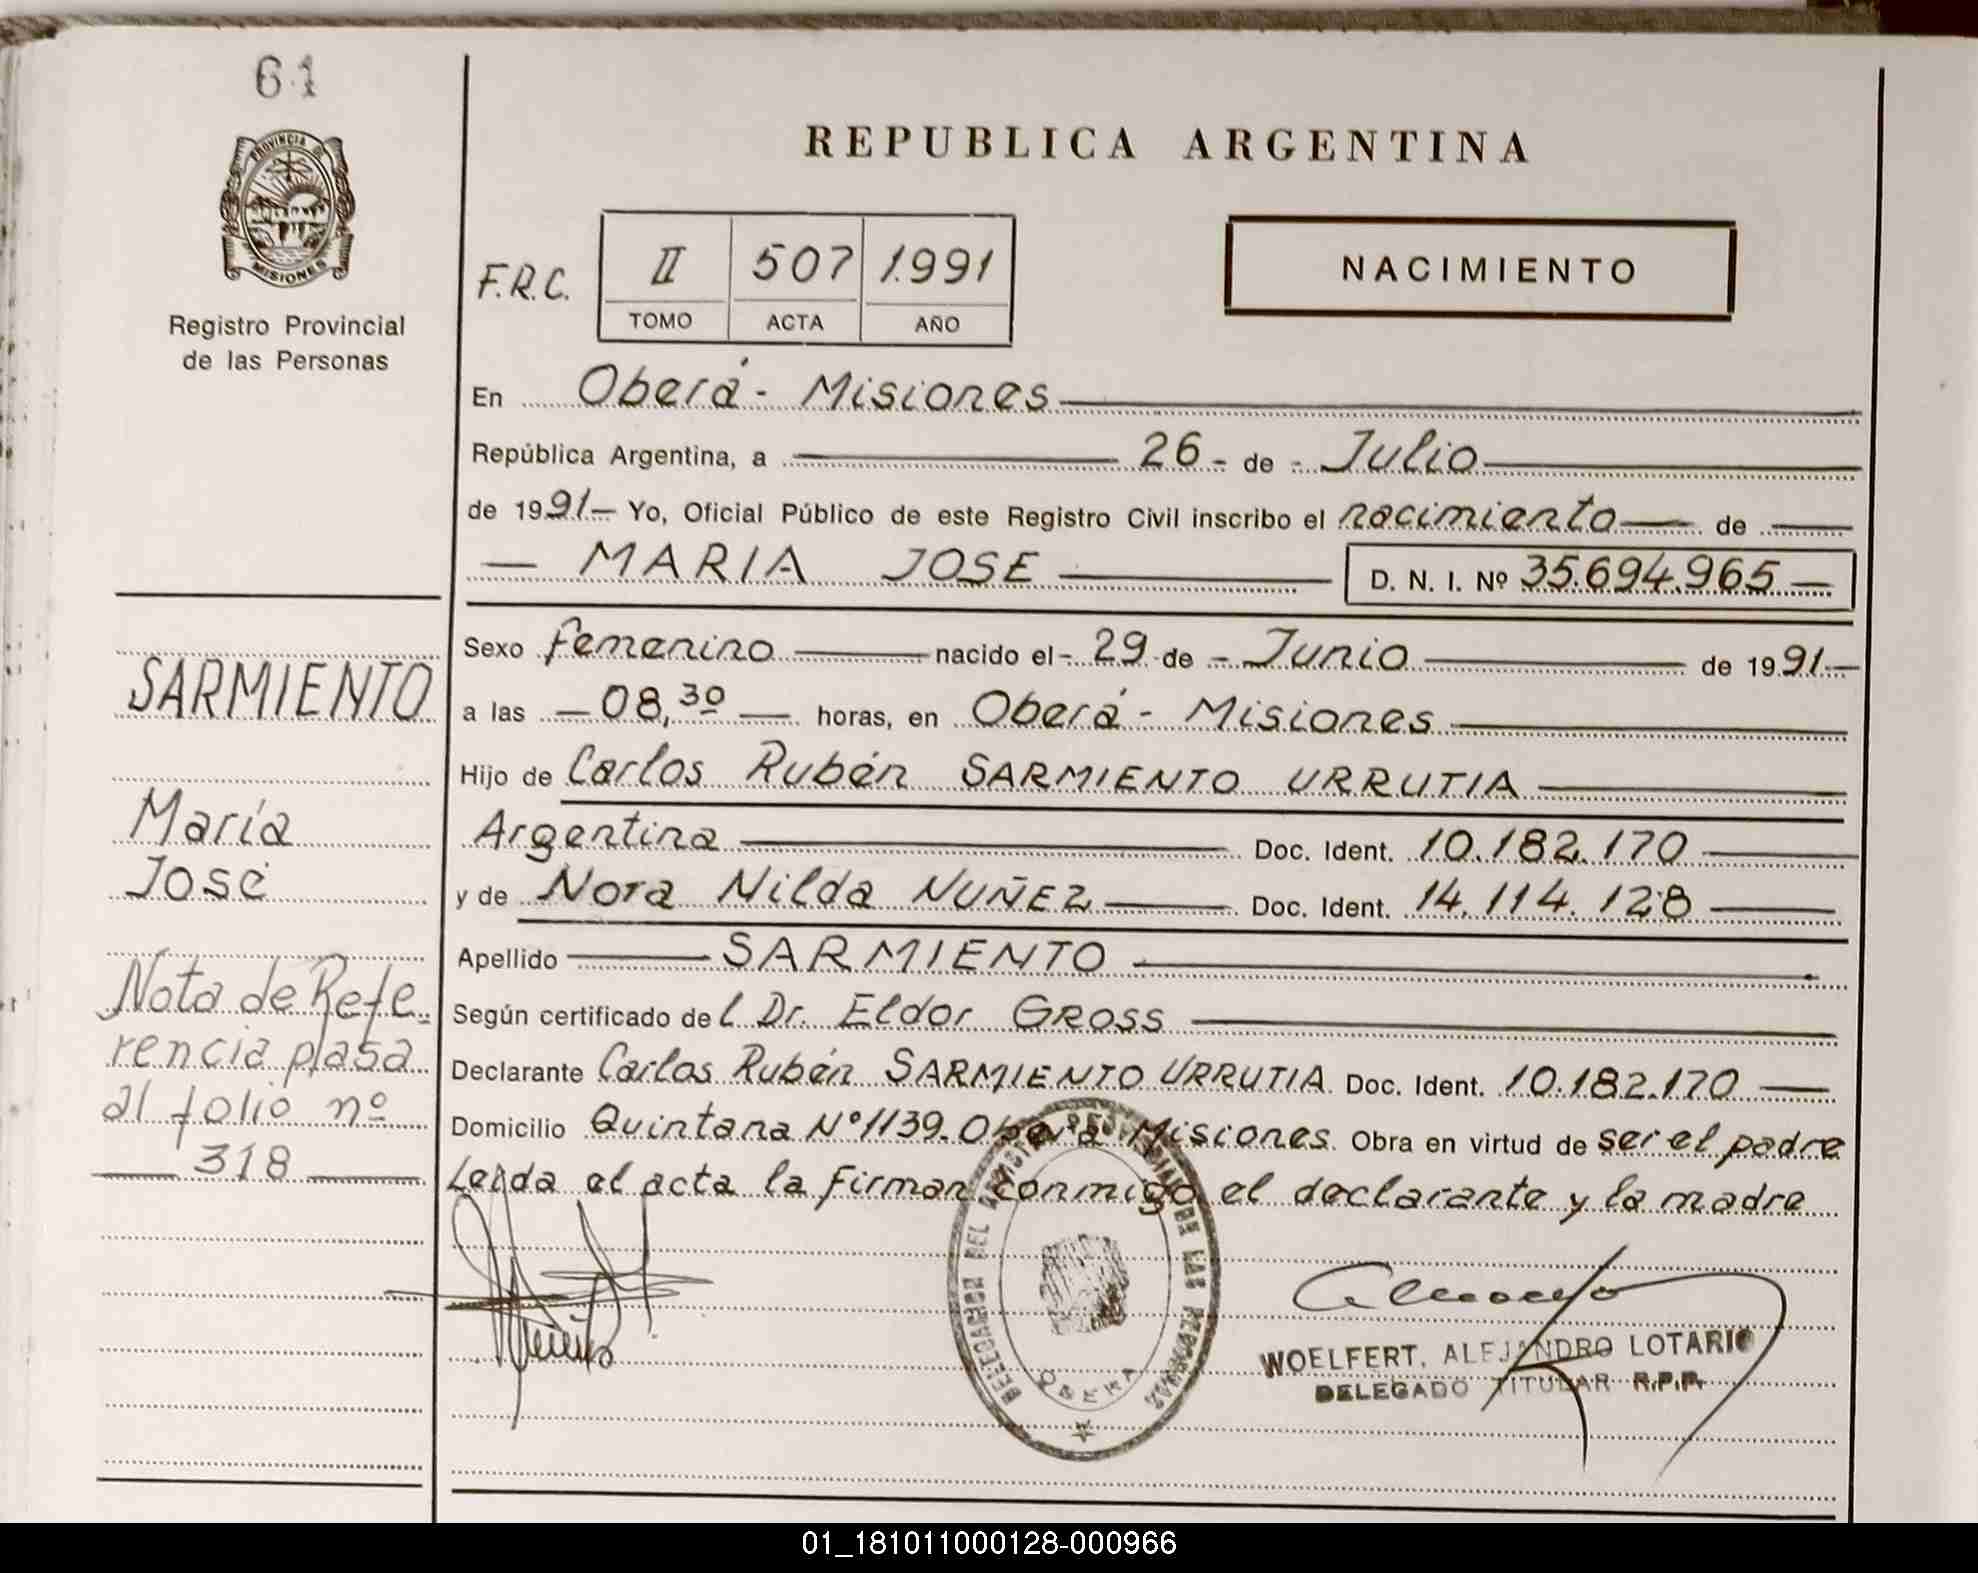 61
PROVINCIA DE
MISIONES
Registro Provincial
de las Personas
REPUBLICA ARGENTINA
F.R.C. II 507 1.991
TOMO ACTA AÑO
NACIMIENTO
En Oberá - Misiones
República Argentina, a 26 - de - Julio
de 1991 - Yo, Oficial Público de este Registro Civil inscribo el nacimiento de
MARIA JOSE D. N. I. Nº 35.694.965
Sexo femenino nacido el - 29 de - Junio de 1991 -
a las - 08,30 - horas, en Oberá - Misiones
Hijo de Carlos Rubén SARMIENTO URRUTIA
Argentina Doc. Ident. 10.182.170
y de Nora Nilda NUÑEZ Doc. Ident. 14.114.128
Apellido SARMIENTO
Según certificado del Dr. Eldor GROSS
Declarante Carlos Rubén SARMIENTO URRUTIA Doc. Ident. 10.182.170
Domicilio Quintana Nº 1139. Oberá Misiones Obra en virtud de ser el padre
Leída el acta la firman conmigo el declarante y la madre
SARMIENTO
María
José
Nota de Refe-
rencia pasa
al folio nº
318
DE LAS PERSONAS
OBERA
WOELFERT, ALEJANDRO LOTARIO
DELEGADO TITULAR R.P.P.
01_181011000128-000966